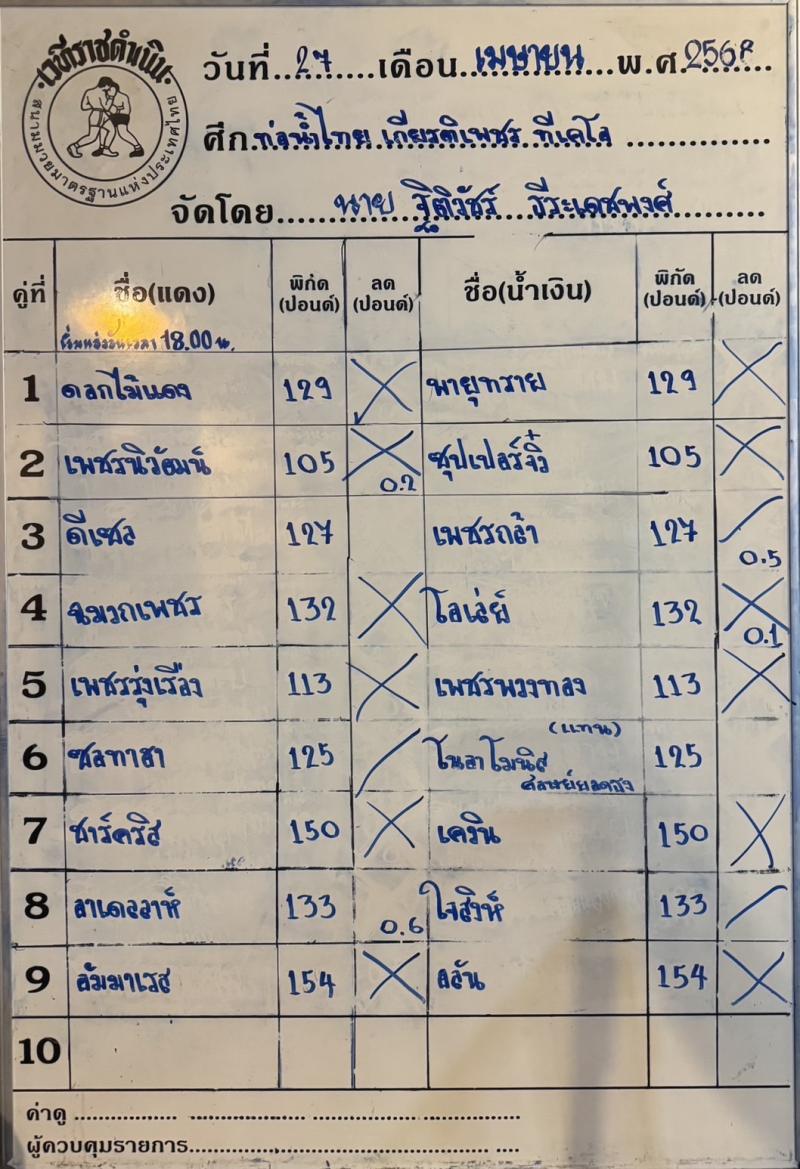 เวทีราชดำเนิน
สนามมวยมาตรฐานแห่งประเทศไทย
วันที่..27.....เดือน..เมษายน...พ.ศ.2568...
ศึก.ท่อน้ำไทย เกียรติเพชร ทีเคโอ...............
จัดโดย......นาย ฐิติวัชร์ ธีระเดชพงศ์.........
คู่ที่ ชื่อ(แดง) พิกัด (ปอนด์) ลด (ปอนด์) ชื่อ(น้ำเงิน) พิกัด (ปอนด์) ลด (ปอนด์)
เวลา 18.00 น.
1 ดอกไม้แดง 129 พายุทราย 129
2 เพชรนิวัฒน์ 105 0.2 ซุปเปอร์จิ๋ว 105
3 ดีเซล 127 เพชรกล้า 127 0.5
4 ฉมวกเพชร 132 โอเล่ย์ 132 0.1
5 เพชรรุ่งเรือง 113 เพชรพวงทอง 113
(แทน)
6 ซอทาฮา 125 125
7 ชาร์คริส 150 เควิน 150
8 133 0.6 ใจสิงห์ 133
9 อัมมาเรส 154 อลัน 154
10
ค่าดู ................. ................... ................. ................
ผู้ควบคุมรายการ.................................................. ....